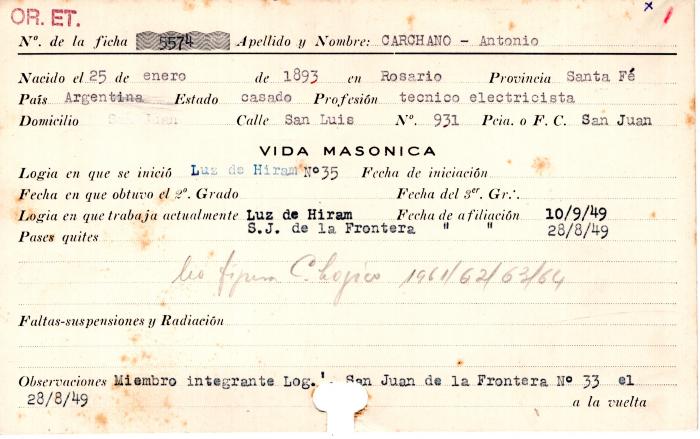 OR. ET.
x /
Nº. de la ficha 5574 Apellido y Nombre: CARCHANO - Antonio
Nacido el 25 de enero de 1893 en Rosario Provincia Santa Fé
País Argentina Estado casado Profesión tecnico electricista
Domicilio San Juan Calle San Luis Nº. 931 Pcia. o F. C. San Juan
VIDA MASONICA
Logia en que se inició Luz de Hiram Nº35 Fecha de iniciación
Fecha en que obtuvo el 2º. Grado Fecha del 3er. Gr∴.
Logia en que trabaja actualmente Luz de Hiram Fecha de afiliación 10/9/49
Pases quites S.J. de la Frontera " " 28/8/49
No figura C. Logico 1961/62/63/64
Faltas-suspensiones y Radiación
Observaciones Miembro integrante Log.'. San Juan de la Frontera Nº 33 el
28/8/49 a la vuelta